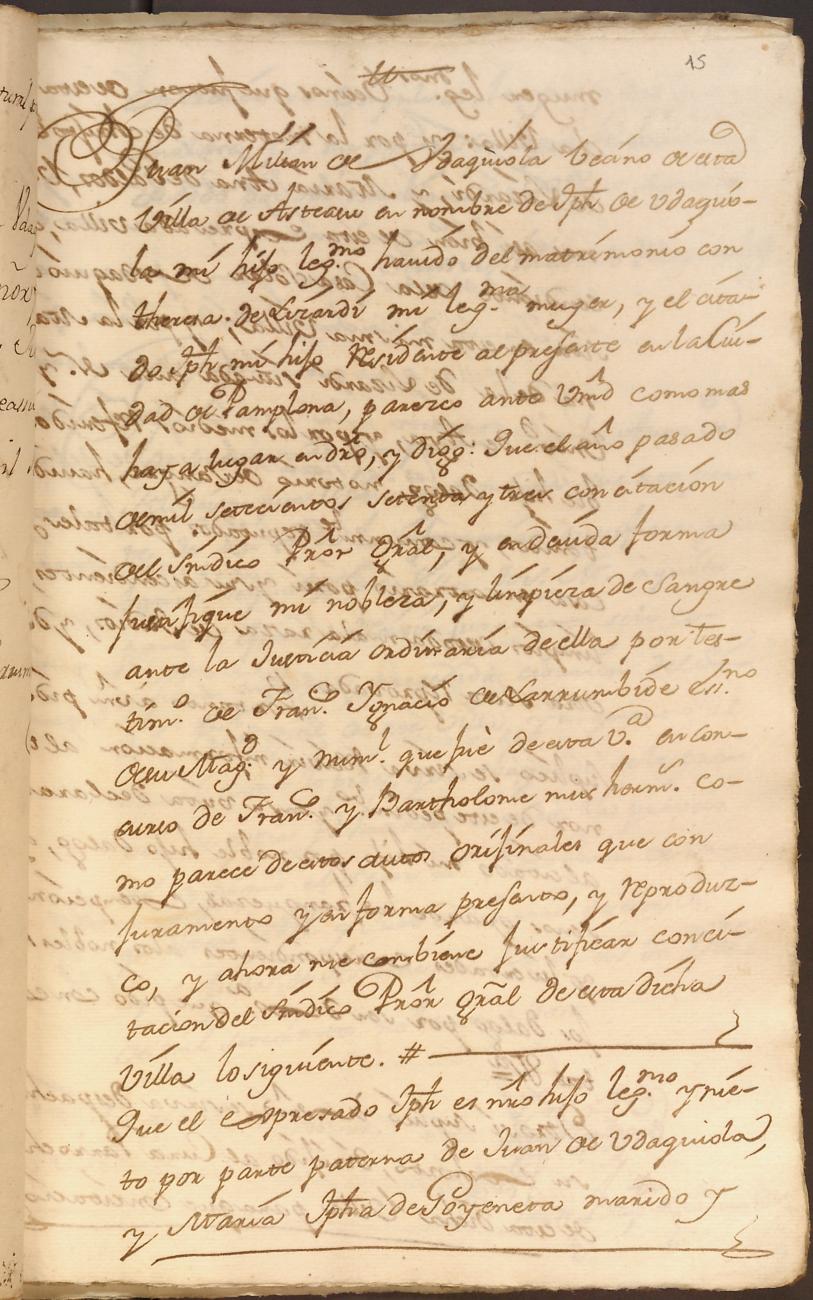 15
Juan Milian de Udaquiola Vecino de esta
Villa de Asteasu en nombre de Jph. de Udaquio-
la mi hijo leg.mo havido del matrimonio con
theresa de Lizardi mi leg.ma muger, y el cita-
do Jph. mi hijo residente al presente en la Ciu-
dad de Pamplona, parezco ante Vmd como mas
haya lugar en dro, y digo: Que el año pasado
de mil setecientos setenta y tres con citacion
del Sindico Pror. Gral, y en devida forma
justifique mi nobleza, y limpieza de Sangre
ante la Justicia ordinaria de ella por tes-
tim.o de Fran.co Ygnacio de Larrumbide ess.no
de su Mag.d y num.l que fuè de esta V.a en con-
curso de Fran.co y Bartholome mis herm.s co-
mo parece de estos autos orijinales que con
juramento y en forma presento, y reproduz-
co, y ahora me combiene justificar con ci-
tacion del Sindico Pror. gral de esta dicha
Villa lo siguiente. #
Que el expresado Jph. es nro hijo leg.mo y nie-
to por parte paterna de Juan de Udaquiola,
y Maria Jpha de Goyeneta marido y